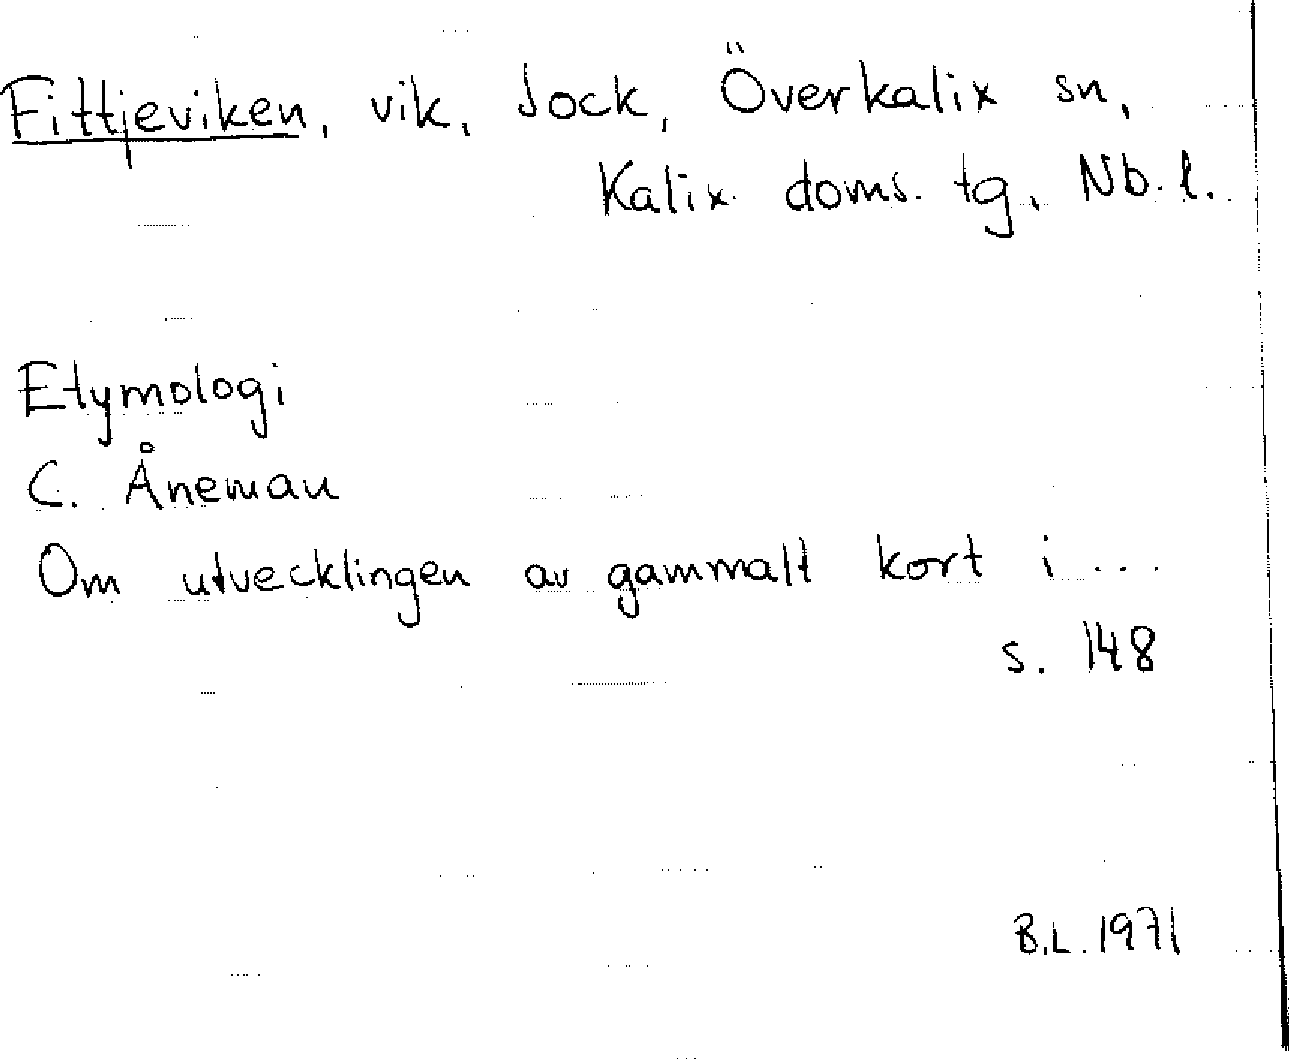 Fittjeviken, vik, Jock, Överkalix sn,
Kalix doms. tg, Nb. l.
Etymologi
C. Åneman
Om utvecklingen av gammalt kort i ...
s. 148
B.L. 1971